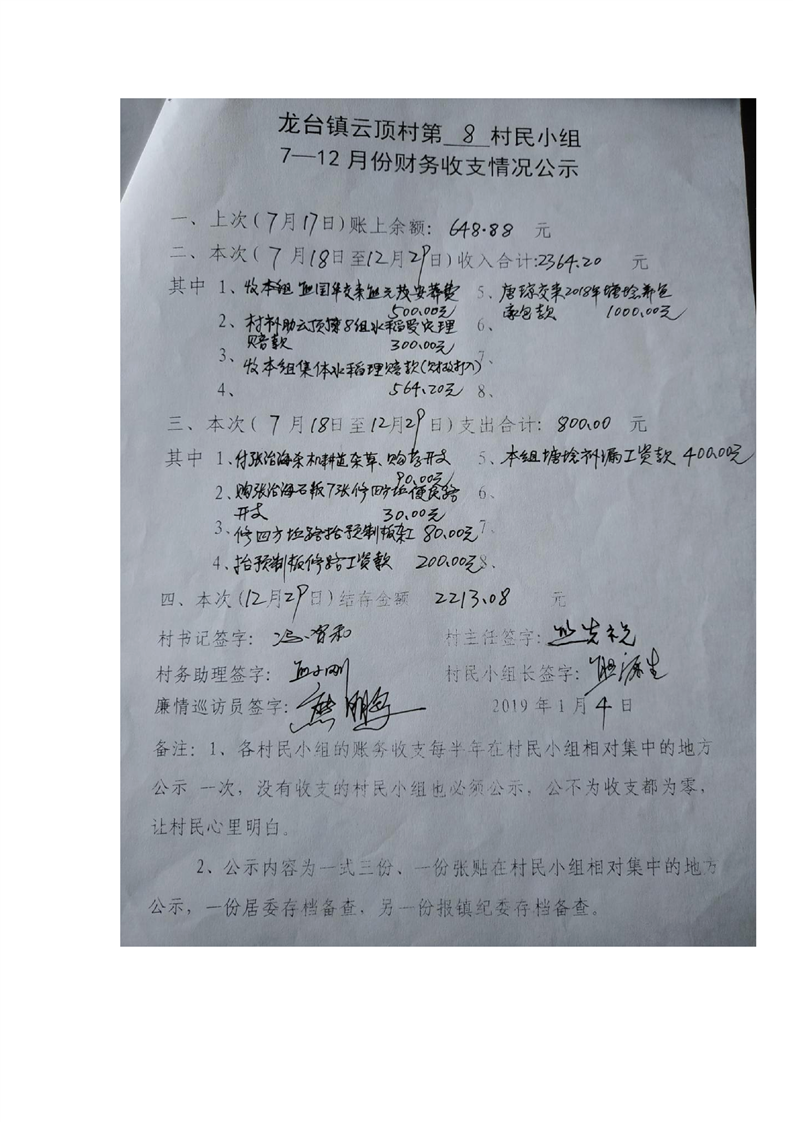 龙台镇云顶村第 8 村民小组
7—12月份财务收支情况公示
一、上次(7月17日)账上余额: 648.88 元
二、本次(7月18日至12月29日)收入合计:2364.20 元
其中 1、收本组 国华交来 安葬费 5、唐琼交来2018年塘埝养鱼
500.00元 承包款 1000.00元
2、村料助云顶 8组水稻受灾理 6、
赔款 300.00元
3、收本组集体水稻理赔款 7、
4、 564.20元 8、
三、本次(7月18日至12月29日)支出合计: 800.00 元
其中 1、付张治海采机耕道杂草、购 开支 5、本组塘埝补漏工资款 400.00元
90.00元
2、购张治海石板7张修四方 便民路 6、
开支 30.00元
3、修四方 路抬预制板 80.00元 7、
4、抬预制板修路工资款 200.00元 8、
四、本次(12月29日)结存金额 2213.08 元
村书记签字: 冯智和 村主任签字:
村务助理签字: 村民小组长签字:
廉情巡访员签字: 熊 2019年1月4日
备注:1、各村民小组的账务收支每半年在村民小组相对集中的地方
公示 一次,没有收支的村民小组也必须公示,公不为收支都为零,
让村民心里明白。
2、公示内容为一式三份、一份张贴在村民小组相对集中的地方
公示,一份居委存档备查,另一份报镇纪委存档备查。